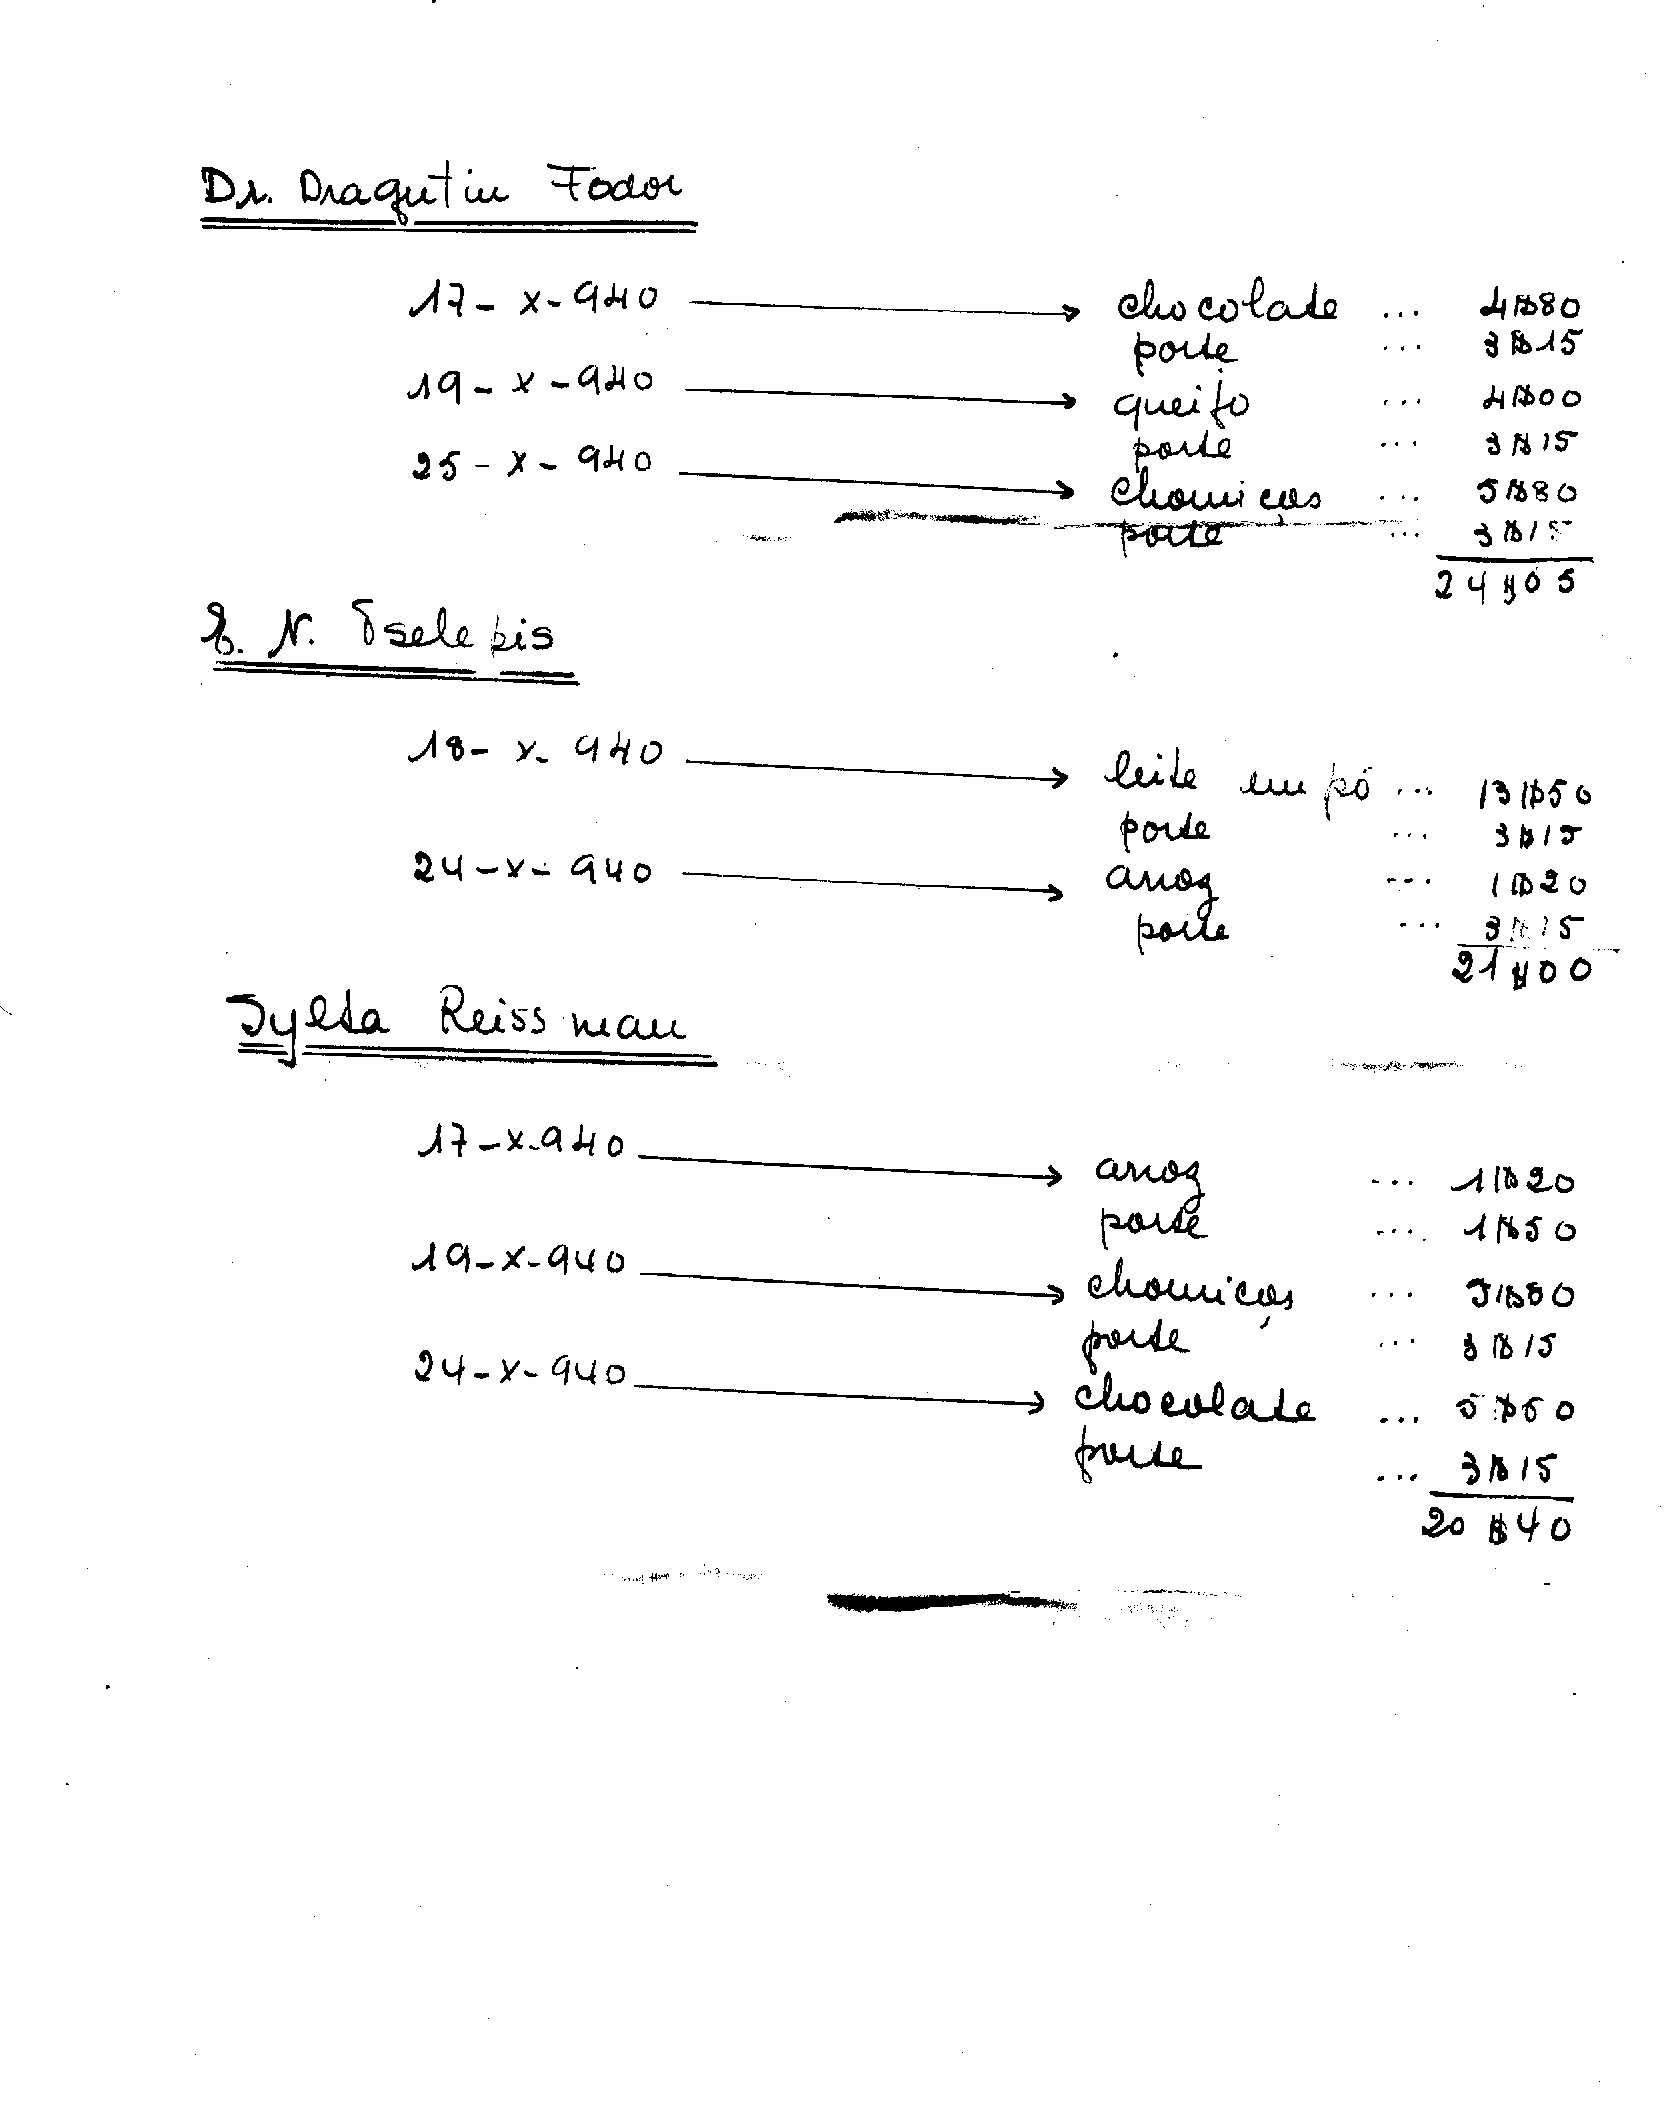 Dr. Dragutin Fodor
17-X-940 → chocolate ... 4$80
porte ... 3$15
19-X-940 → queijo ... 4$00
porte ... 3$15
25-X-940 → chouriços ... 5$80
porte ... 3$15
24$05
E. N. Tselepis
18-X-940 → leite em pó ... 13$50
porte ... 3$15
24-X-940 → arroz ... 1$20
porte ... 3$15
21$00
Reissman
17-X-940 → arroz ... 1$20
porte ... 1$50
19-X-940 → chouriços ... 5$80
porte ... 3$15
24-X-940 → chocolate ... 5$60
porte ... 3$15
20$40